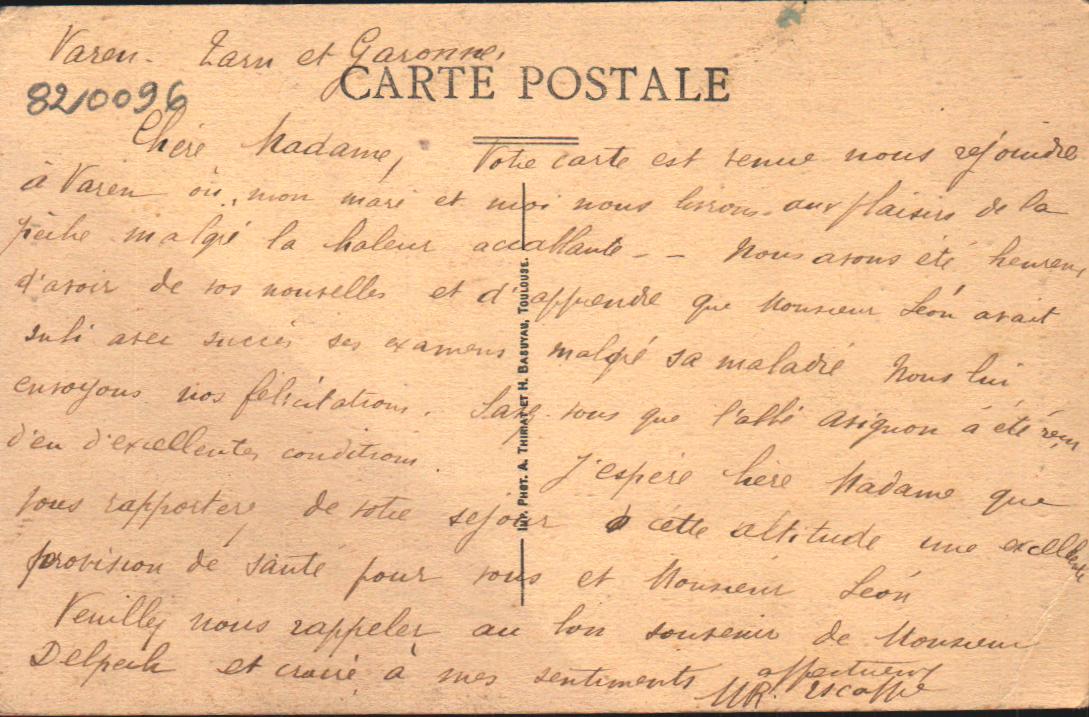 Varen. Tarn et Garonne,
CARTE POSTALE
82/0096
Chère Madame, Votre carte est venue nous rejoindre
à Varen où, mon mari et moi nous livrons aux plaisirs de la
pêche malgré la chaleur accablante - - Nous avons été heureux
d'avoir de vos nouvelles et d'apprendre que Monsieur Léon avait
subi avec succès ses examens malgré sa maladie Nous lui
envoyons nos félicitations. Savez-vous que l'abbé Avignon a été reçu
d'en d'excellentes conditions.
J'espère chère Madame que
vous rapporterez de votre séjour à cette altitude une excellente
provision de santé pour vous et Monsieur Léon
Veuillez nous rappeler au bon souvenir de Monsieur
Delpech et croire à mes sentiments affectueux
MR. Escaffre
IMP. PHOT. A. THIRIAT ET H. BASUYAU, TOULOUSE.